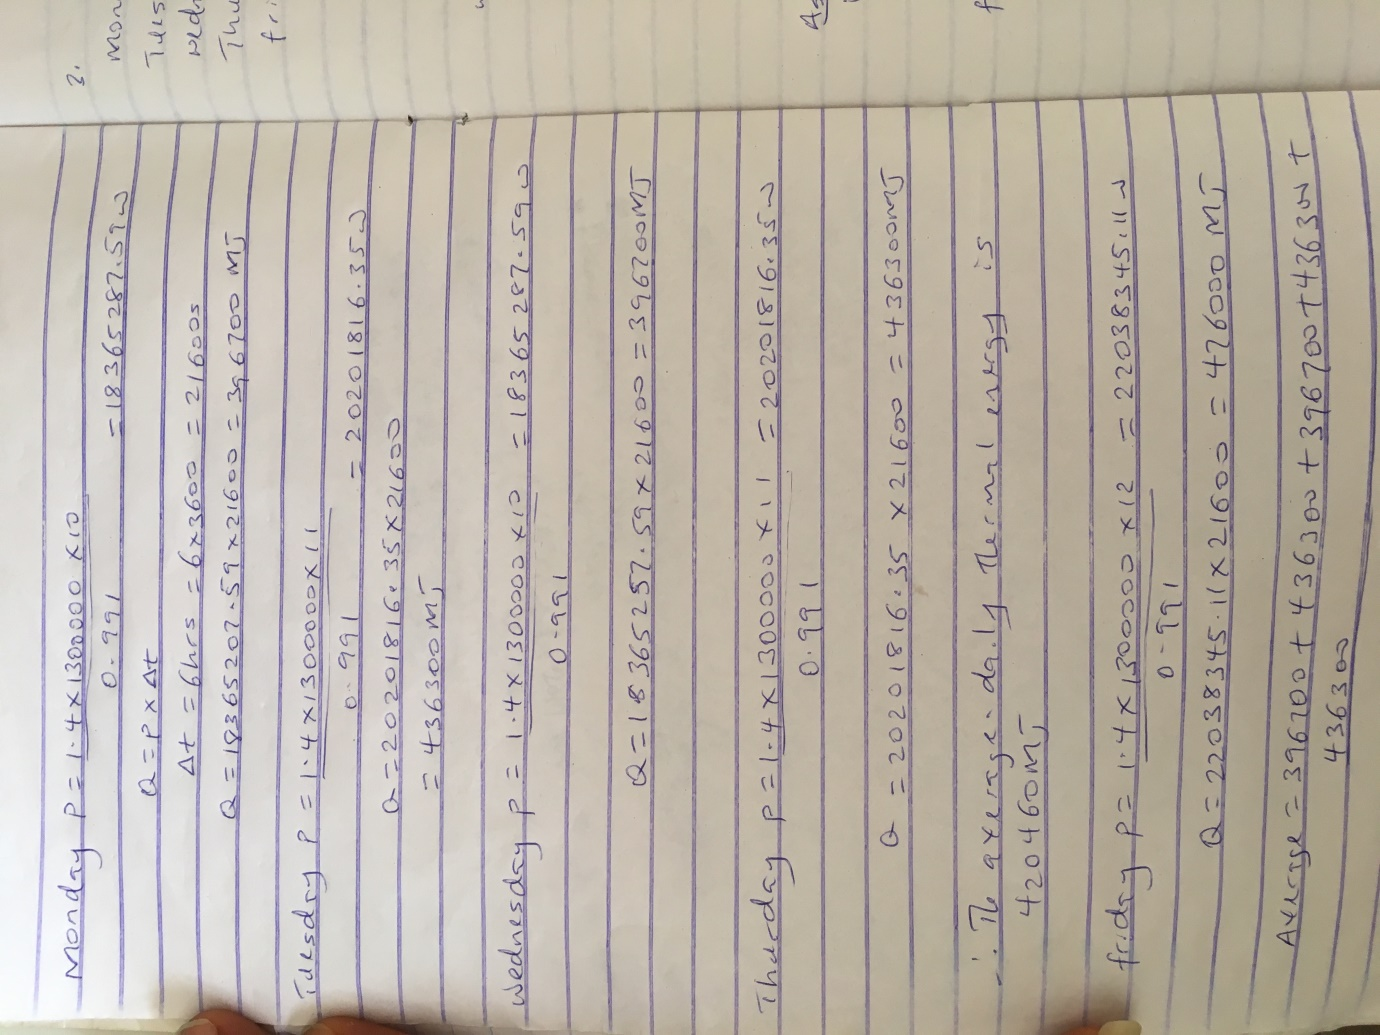 Monday P = 1.4 x 1300000 x 10
0.991 = 18365287.59w
Q = P x Δt
Δt = 6hrs = 6 x 3600 = 21600s
Q = 18365207.59 x 21600 = 396700 MJ
Tuesday P = 1.4 x 1300000 x 11
0.991 = 20201816.35w
Q = 20201816.35 x 21600
= 436300MJ
Wednesday P = 1.4 x 1300000 x 10 = 18365287.59w
0.991
Q = 18365257.59 x 21600 = 396700MJ
Thursday P = 1.4 x 1300000 x 11 = 20201816.35w
0.991
Q = 20201816.35 x 21600 = 436300MJ
∴ The average daily thermal energy is
420460MJ
friday P = 1.4 x 1300000 x 12 = 22038345.11w
0.991
Q = 22038345.11 x 21600 = 476000 MJ
Average = 396700 + 436300 + 396700 + 436300 +
436300
3.
Mon
Tues
Wedn
Thu
fri